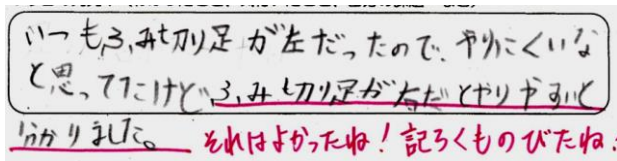 いつも、ふみ切り足が左だったので、やりにくいな
と思ってたけど、ふみ切り足が右だとやりやすいと
分かりました。 それはよかったね！記ろくものびたね。